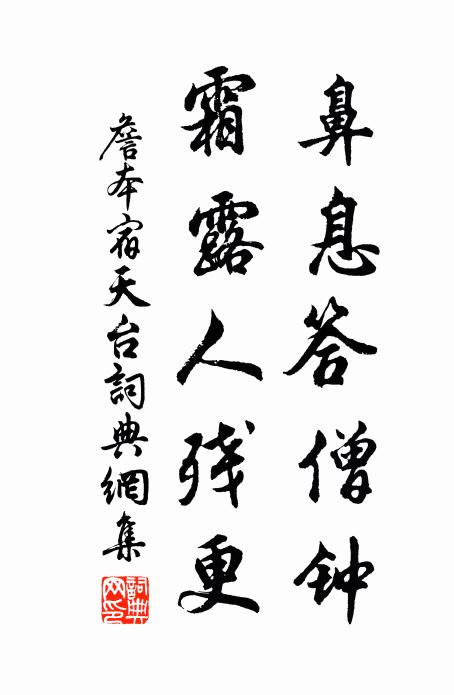 鼻息答僧钟
霜露人残更
詹本宿天台詞典網集
詞典網印